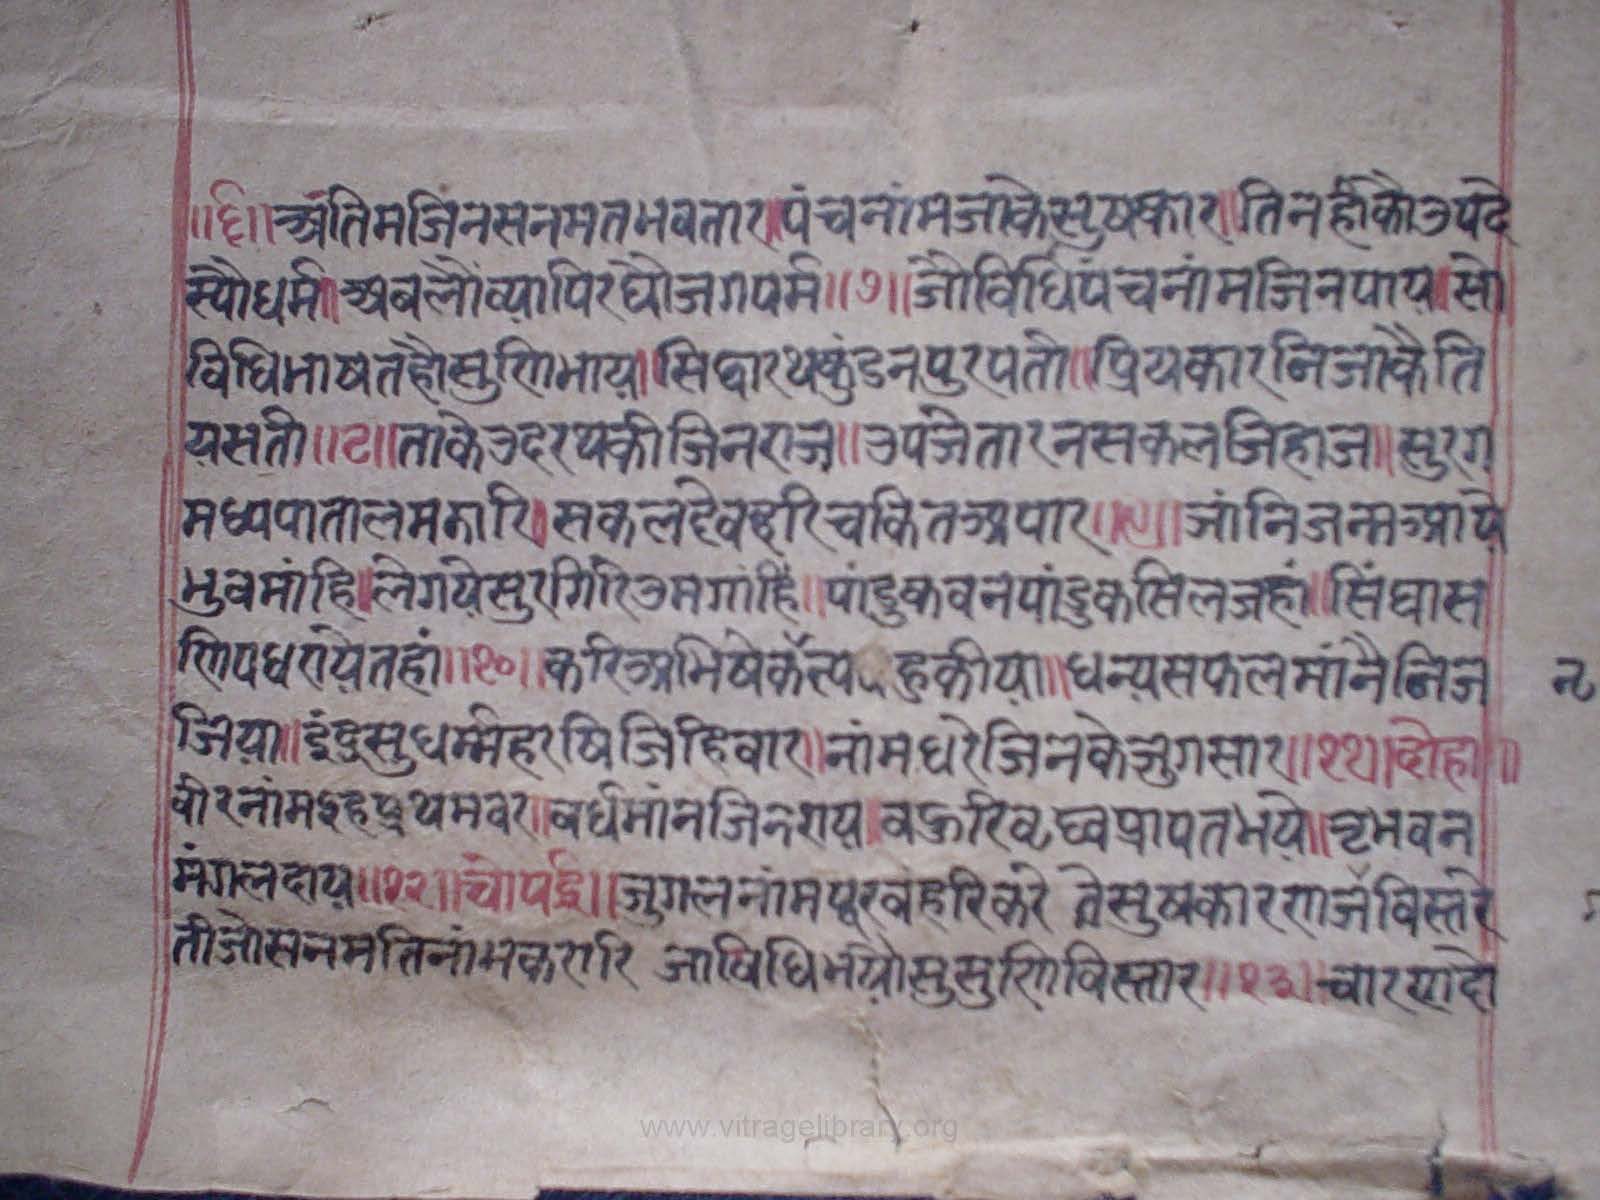 ॥६॥अंतिमजिनसनमतभवतार॥पंचनांमजाकेसुषकार॥तिनहीकौउपदे
स्यौधर्म॥अबलौंव्यापिरह्यौजगपर्म॥७॥जौविधिपंचनांमजिनपाय॥सो
विधिभाषतहौसुणिभाय॥सिद्धारथकुंडनपुरपती॥प्रियकारनिजाकैति
यसती॥८॥ताकेउदरथकीजिनराज॥उपजेतारनसकलजिहाज॥सुरग
मध्यपातालमझारि॥सकलदेवहरिचकितअपार॥९॥जांनिजन्मआये
भुवमांहि॥लेगयेसुरगिरिउमगांहिं॥पांडुकवनपांडुकसिलजहां॥सिंघास
णिपधरायेतहां॥१०॥करिअभिषेक हकीया॥धन्यसफलमांनैनिज
जिया॥इंद्रसुधर्म्महरषिजिहिवार॥नांमधरेजिनकेजुगसार॥११॥दोहा॥
वीरनांमइहप्रथमवर॥वर्धमांनजिनराय॥ प्रापतभये॥ भवन
मंगलदाय॥१२॥चौपई॥जुगलनांमपूरवहरिकरे तेसुषकारण विस्तरे
तीजौसनमतिनांमकरारि जाविधिभयौसुसुणिविस्तार॥१३॥चारणदो
www.vitragelibrary.org